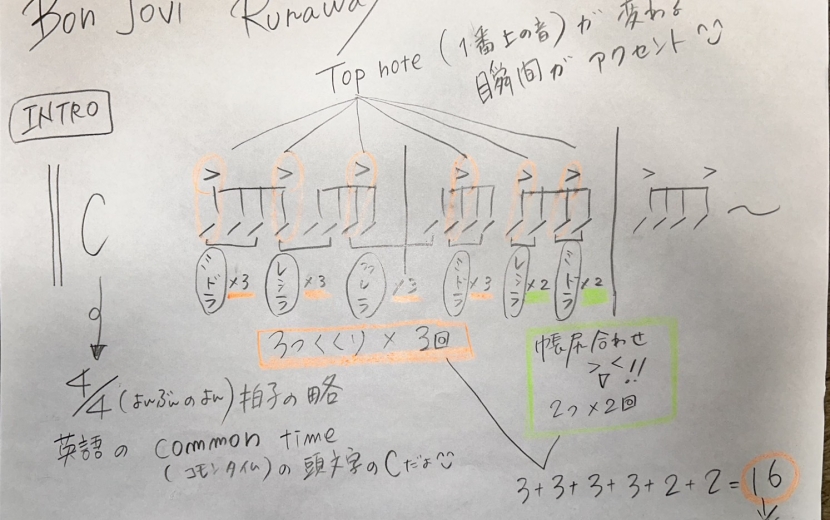 Bon Jovi Runaway
Top note (1番上の音) が 変わる
瞬間が アクセント
INTRO
C
> > > > > > > >
ミドラ ×3 レシラ ×3 ×3 ミドラ ×3 レシラ ×2 ミドラ ×2
3つくくり × 3回
帳尻合わせ
><!!
2つ×2回
4/4 (よんぶんのよん) 拍子の略
英語の common time
(コモンタイム) の 頭文字のCだよ
3+3+3+3+2+2=16